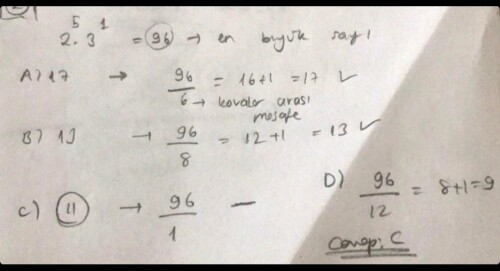 2⁵.3¹ = 96 → en büyük sayı
A) 17 → 96/6 = 16+1 = 17 ✓
→ kovalar arası mesafe
B) 13 → 96/8 = 12+1 = 13 ✓
C) 11 → 96/1 —
D) 96/12 = 8+1=9
Cevap: C